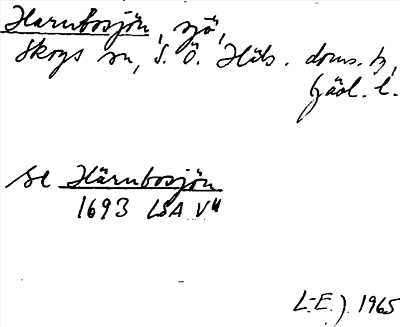 Harnbosjön, sjö,
Skogs sn, S. Ö. Häls. doms. h,
Gävl. l.
se Härnbosjön
1693 LSA V4
L-E. J. 1965